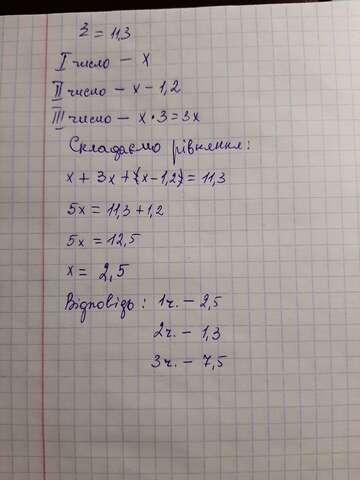 3 = 11,3
I число - x
II число - x - 1,2
III число - x · 3 = 3x
Складаємо рівняння:
x + 3x + (x - 1,2) = 11,3
5x = 11,3 + 1,2
5x = 12,5
x = 2,5
Відповідь: 1ч. - 2,5
2ч. - 1,3
3ч. - 7,5